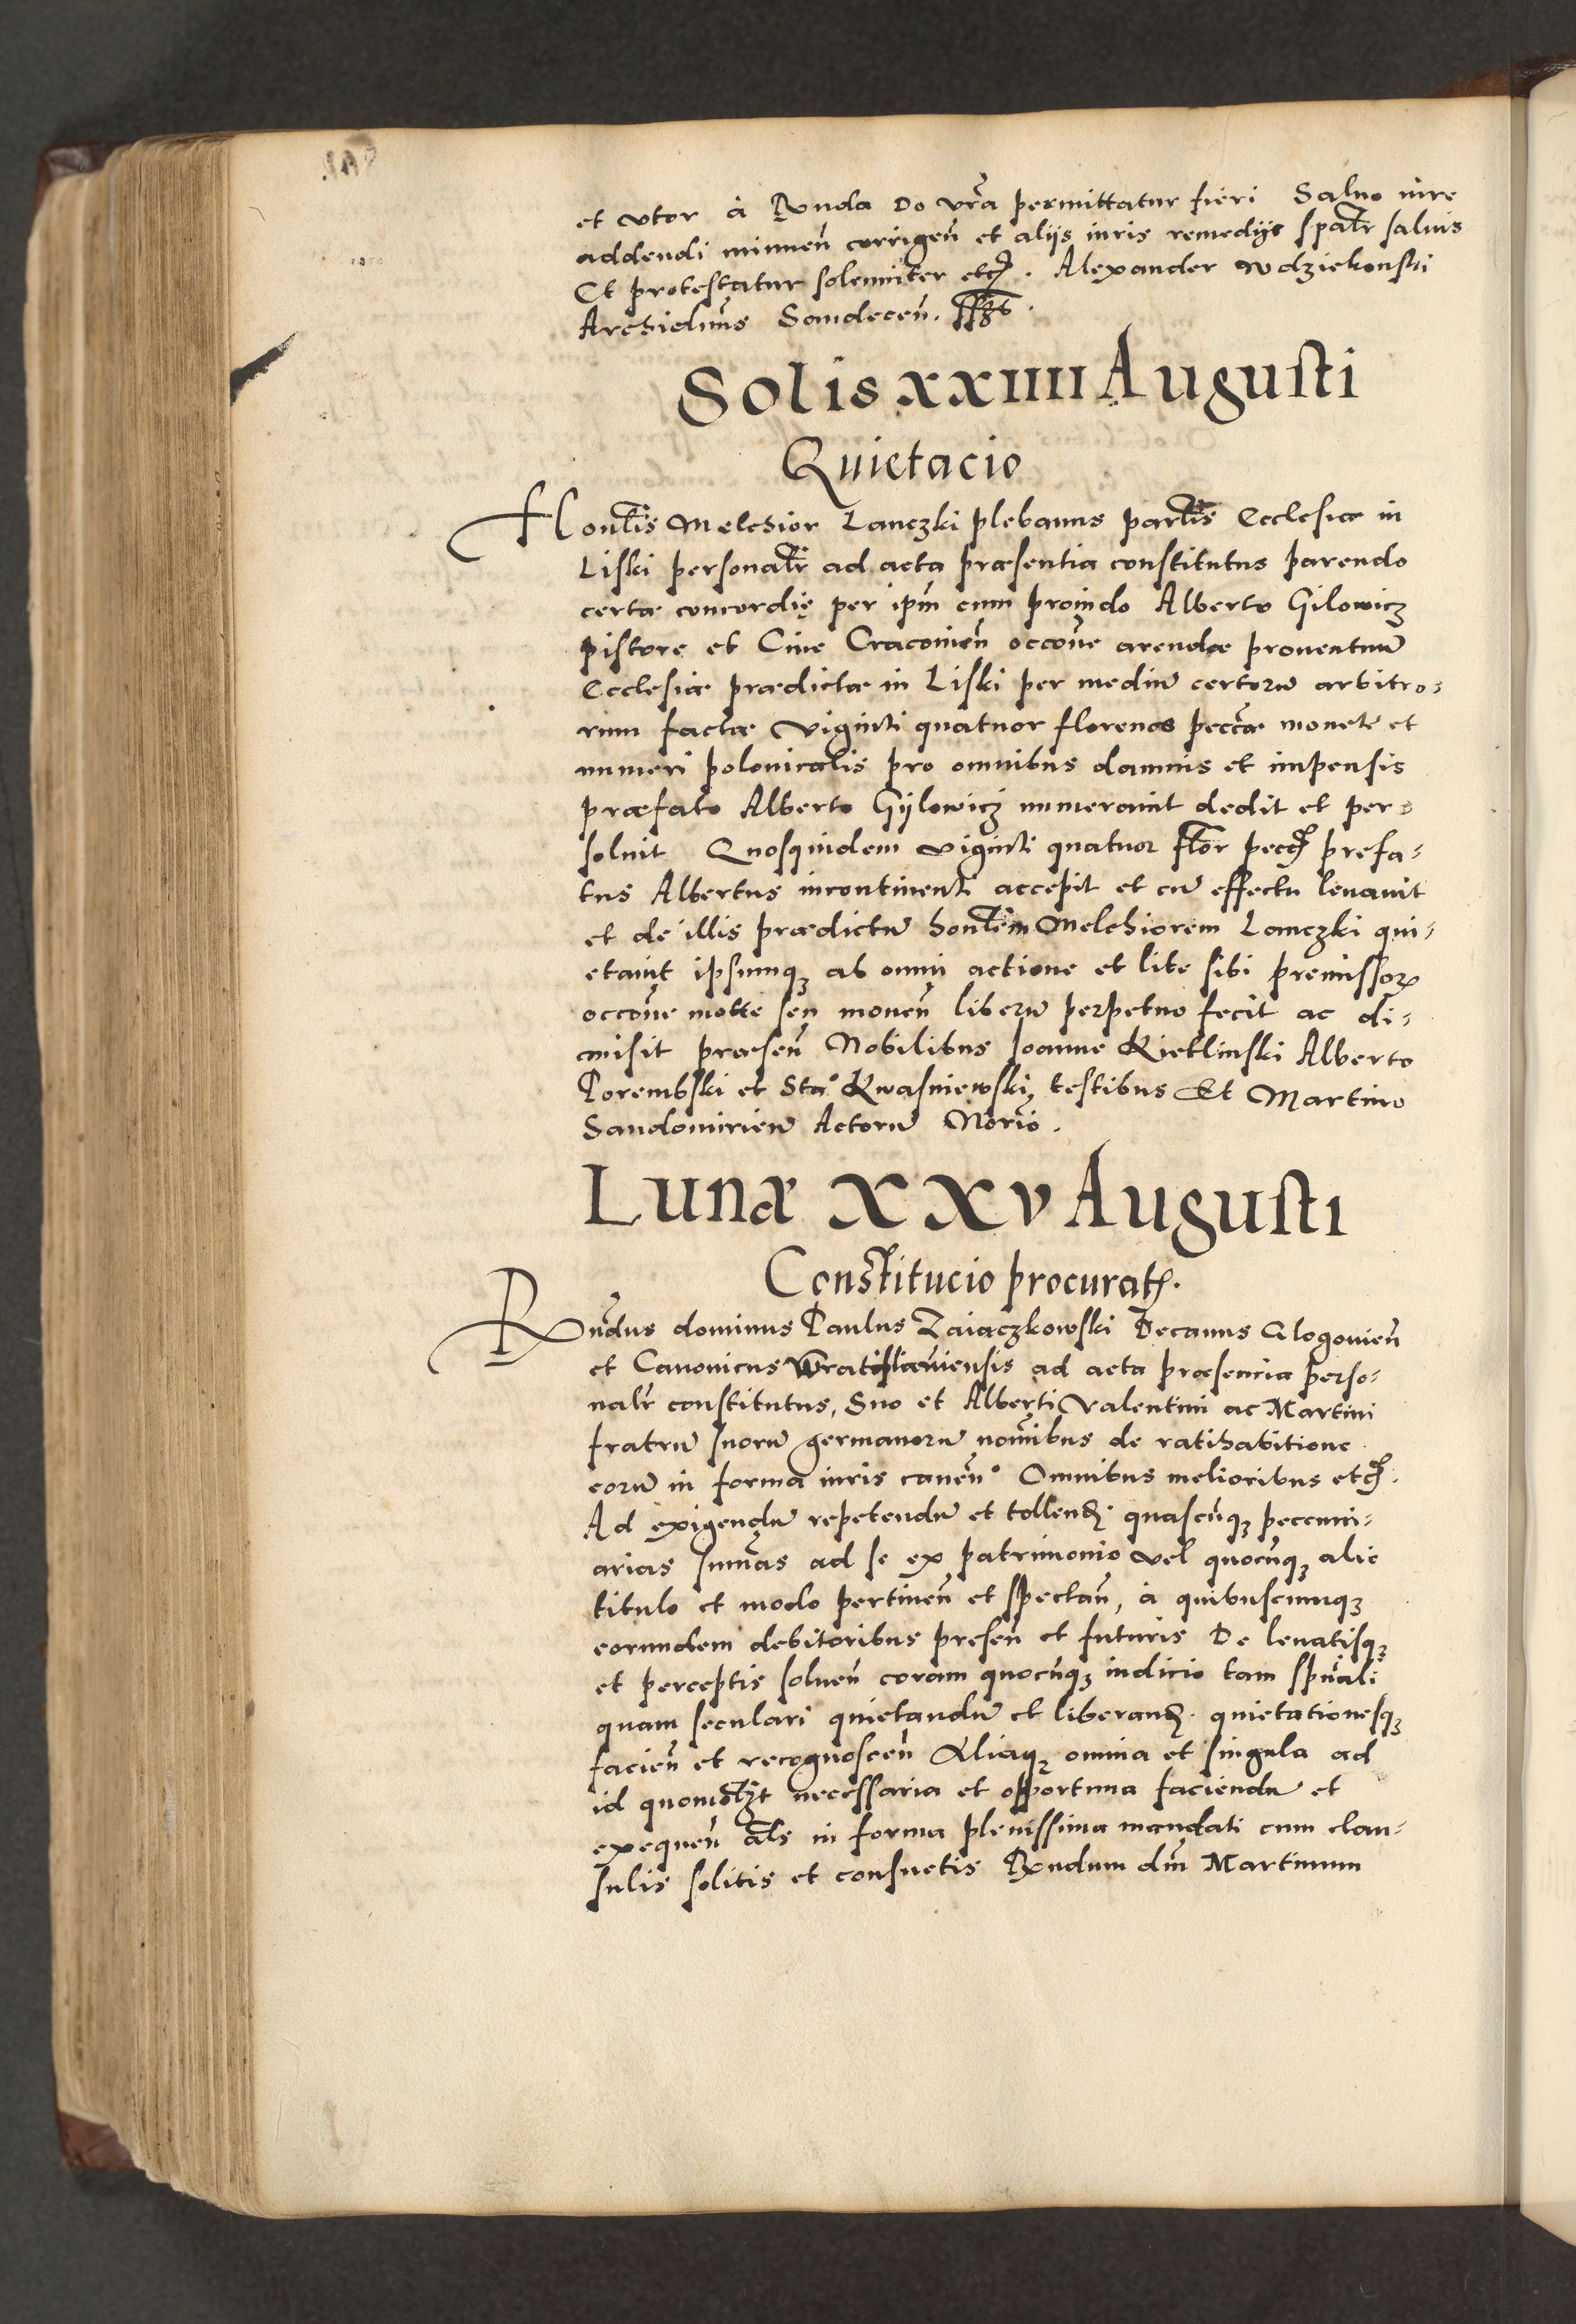 et vtor à Rnda Do vra permittatur fieri Saluo iure
addendi minuen corrigen et alijs iuris remedijs spalr saluis
Et protestatur solenniter etc. Alexander Wdziekonski
Archidnus Sandecen. sszt.
Solis xxiiii Augusti
Quietacio
Honlis Melchior Lanczki plebanus parlis Ecclesiæ in
Liski personalr ad acta præsentia constitutus parendo
certæ concordię per ipm cum proindo Alberto Gilowicz
pistore et Ciue Cracouien occone arendæ prouentuu
Ecclesiæ prædictæ in Liski per mediu certoru arbitro-
rum factæ Viginti quatuor florenos peccæ monetæ et
numeri polonicalis pro omnibus damnis et impensis
præfato Alberto Gijlowicz numerauit dedit et per-
soluit Quosquidem viginti quatuor flor pecc prefa-
tus Albertus incontinenti accepit et cu effectu leuauit
et de illis prædictu honlem Melchiorem Lanczki qui-
etauit ipsumq ab omni actione et lite sibi premissor
occone motte seu mouen liberu perpetuo fecit ac di-
misit præsen Nobilibus Joanne Kietlinski Alberto
Porembski et Sta° Kwasniewski, testibus Et Martino
Sandomirien Actoru Norio.
Lunæ xxv Augusti
Constitucio procurat.
Rndus dominus Paulus Zaiaczkowski Decanus Glogouien
et Canonicus Wratislauiensis ad acta præsencia perso-
nalr constitutus, Suo et Alberti Valentini ac Martini
fratru suoru germanoru nominibus de ratihabitione
eoru in forma iuris cauen. Omnibus melioribus etc.
Ad exigendu repetendu et tollend. quascunq peccuni-
arias sumas ad se ex patrimonio vel quocunq alio
titulo et modo pertinen et spectan, à quibuscunq
eorundem debitoribus presen et futuris De leuatisq
et perceptis soluen coram quocunq iudicio tam spuali
quam seculari quietandu et liberand. quietationesq
facien et recognoscen Aliaq omnia et singula ad
id quomolzt necessaria et opportuna faciendu et
exequen als in forma plenissima mandati cum clau-
sulis solitis et consuetis Rndum dnm Martinum